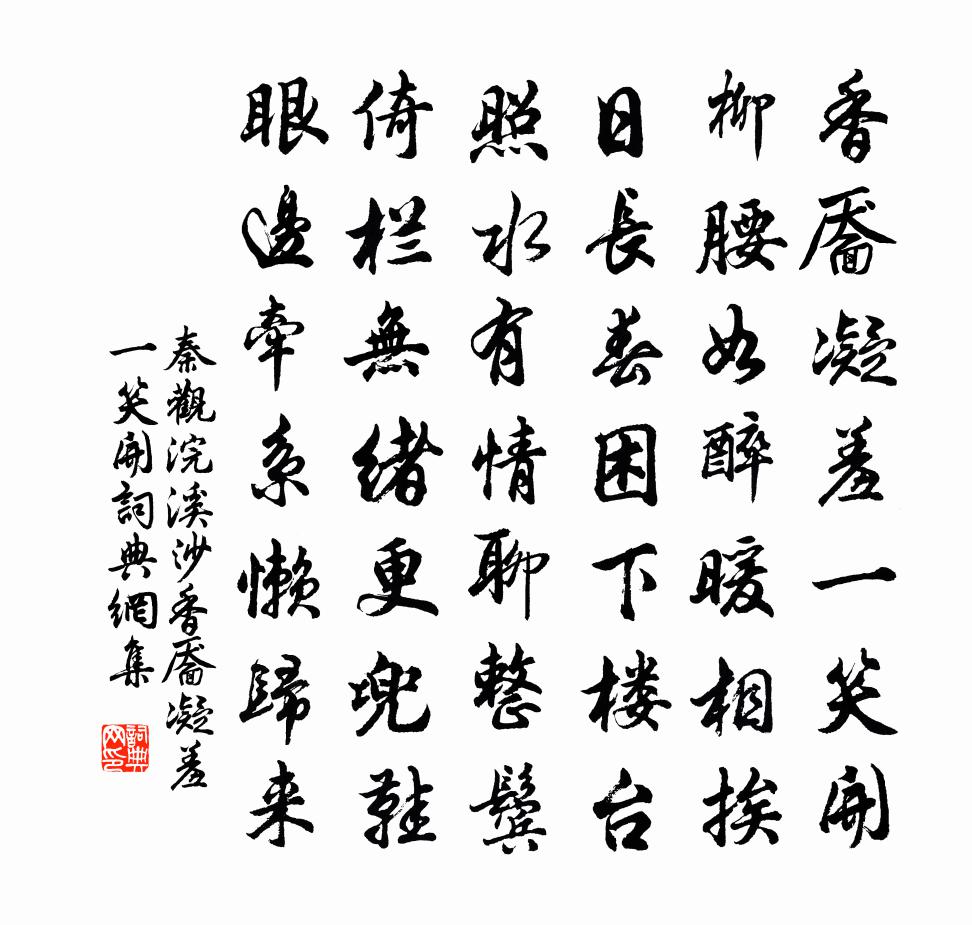 香靥凝羞一笑開
柳腰如醉暖相挨
日長春困下楼台
照水有情聊整鬓
倚栏無緒更兜鞋
眼邊牵系懒歸来
秦觀浣溪沙香靥凝羞
一笑開詞典網集
詞典
网印